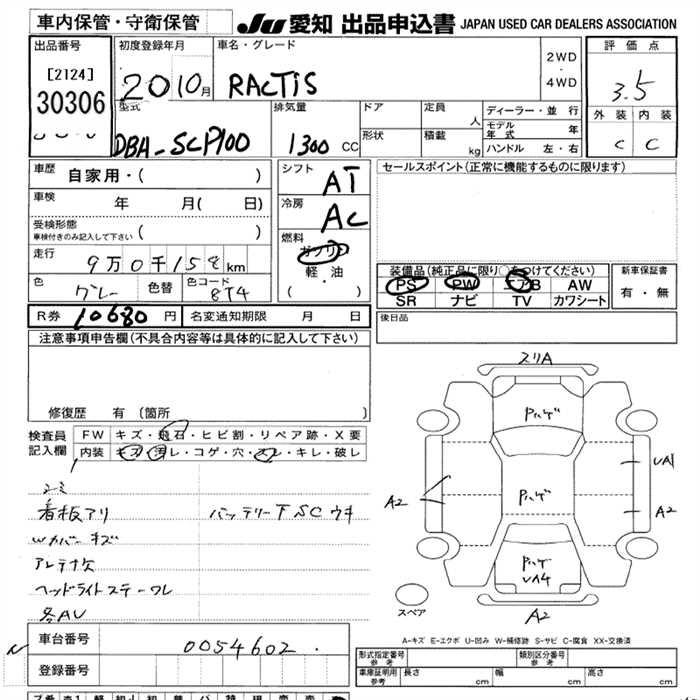 車内保管・守衛保管 JU 愛知 出品申込書 JAPAN USED CAR DEALERS ASSOCIATION
出品番号 初度登録年月 車名・グレード 2WD ・ 4WD 評価点
[2124] 20 10月 RACTIS 3.5
30306 型式 排気量 ドア 定員 人 ディーラー・並行 外装 内装
DBA-SCP100 1300 CC 形状 積載 kg モデル年式 年 C C
ハンドル 左・右
車歴 自家用・( ) シフト AT セールスポイント(正常に機能するものに限ります)
車検 年 月( 日) 冷房 AC
受検形態 車検付きのみ記入して下さい ( ) 燃料 ガソリン
走行 9万0千158km 軽・油 装備品(純正品に限り○をつけてください) 新車保証書
色 グレー 色替 色コード 8T4 ( ・ ) PS PW エアB AW 有・無
SR ナビ TV カワシート
R券 10680 円 名変通知期限 月 日 後日品
注意事項申告欄(不具合内容等は具体的に記入して下さい)
修復歴 有 (箇所 )
検査員記入欄 FW キズ・飛石・ヒビ割・リペア跡・X要
内装 キズ・汚レ・コゲ・穴・スレ・キレ・破レ
スリA
Pハゲ
UA1
A2
Pハゲ
A2
Pハゲ
UA4
A2
スペア
看板アリ バッテリー下SCウキ
Wカバーキズ
アンテナ欠
ヘッドライトステーワレ
各AU
A-キズ E-エクボ U-凹み W-補修跡 S-サビ C-腐食 XX-交換済
車台番号 0054602
登録番号
型式指定番号 参考 類別区分番号 参考
車庫証明用 参考 長さ cm 幅 cm 高さ cm